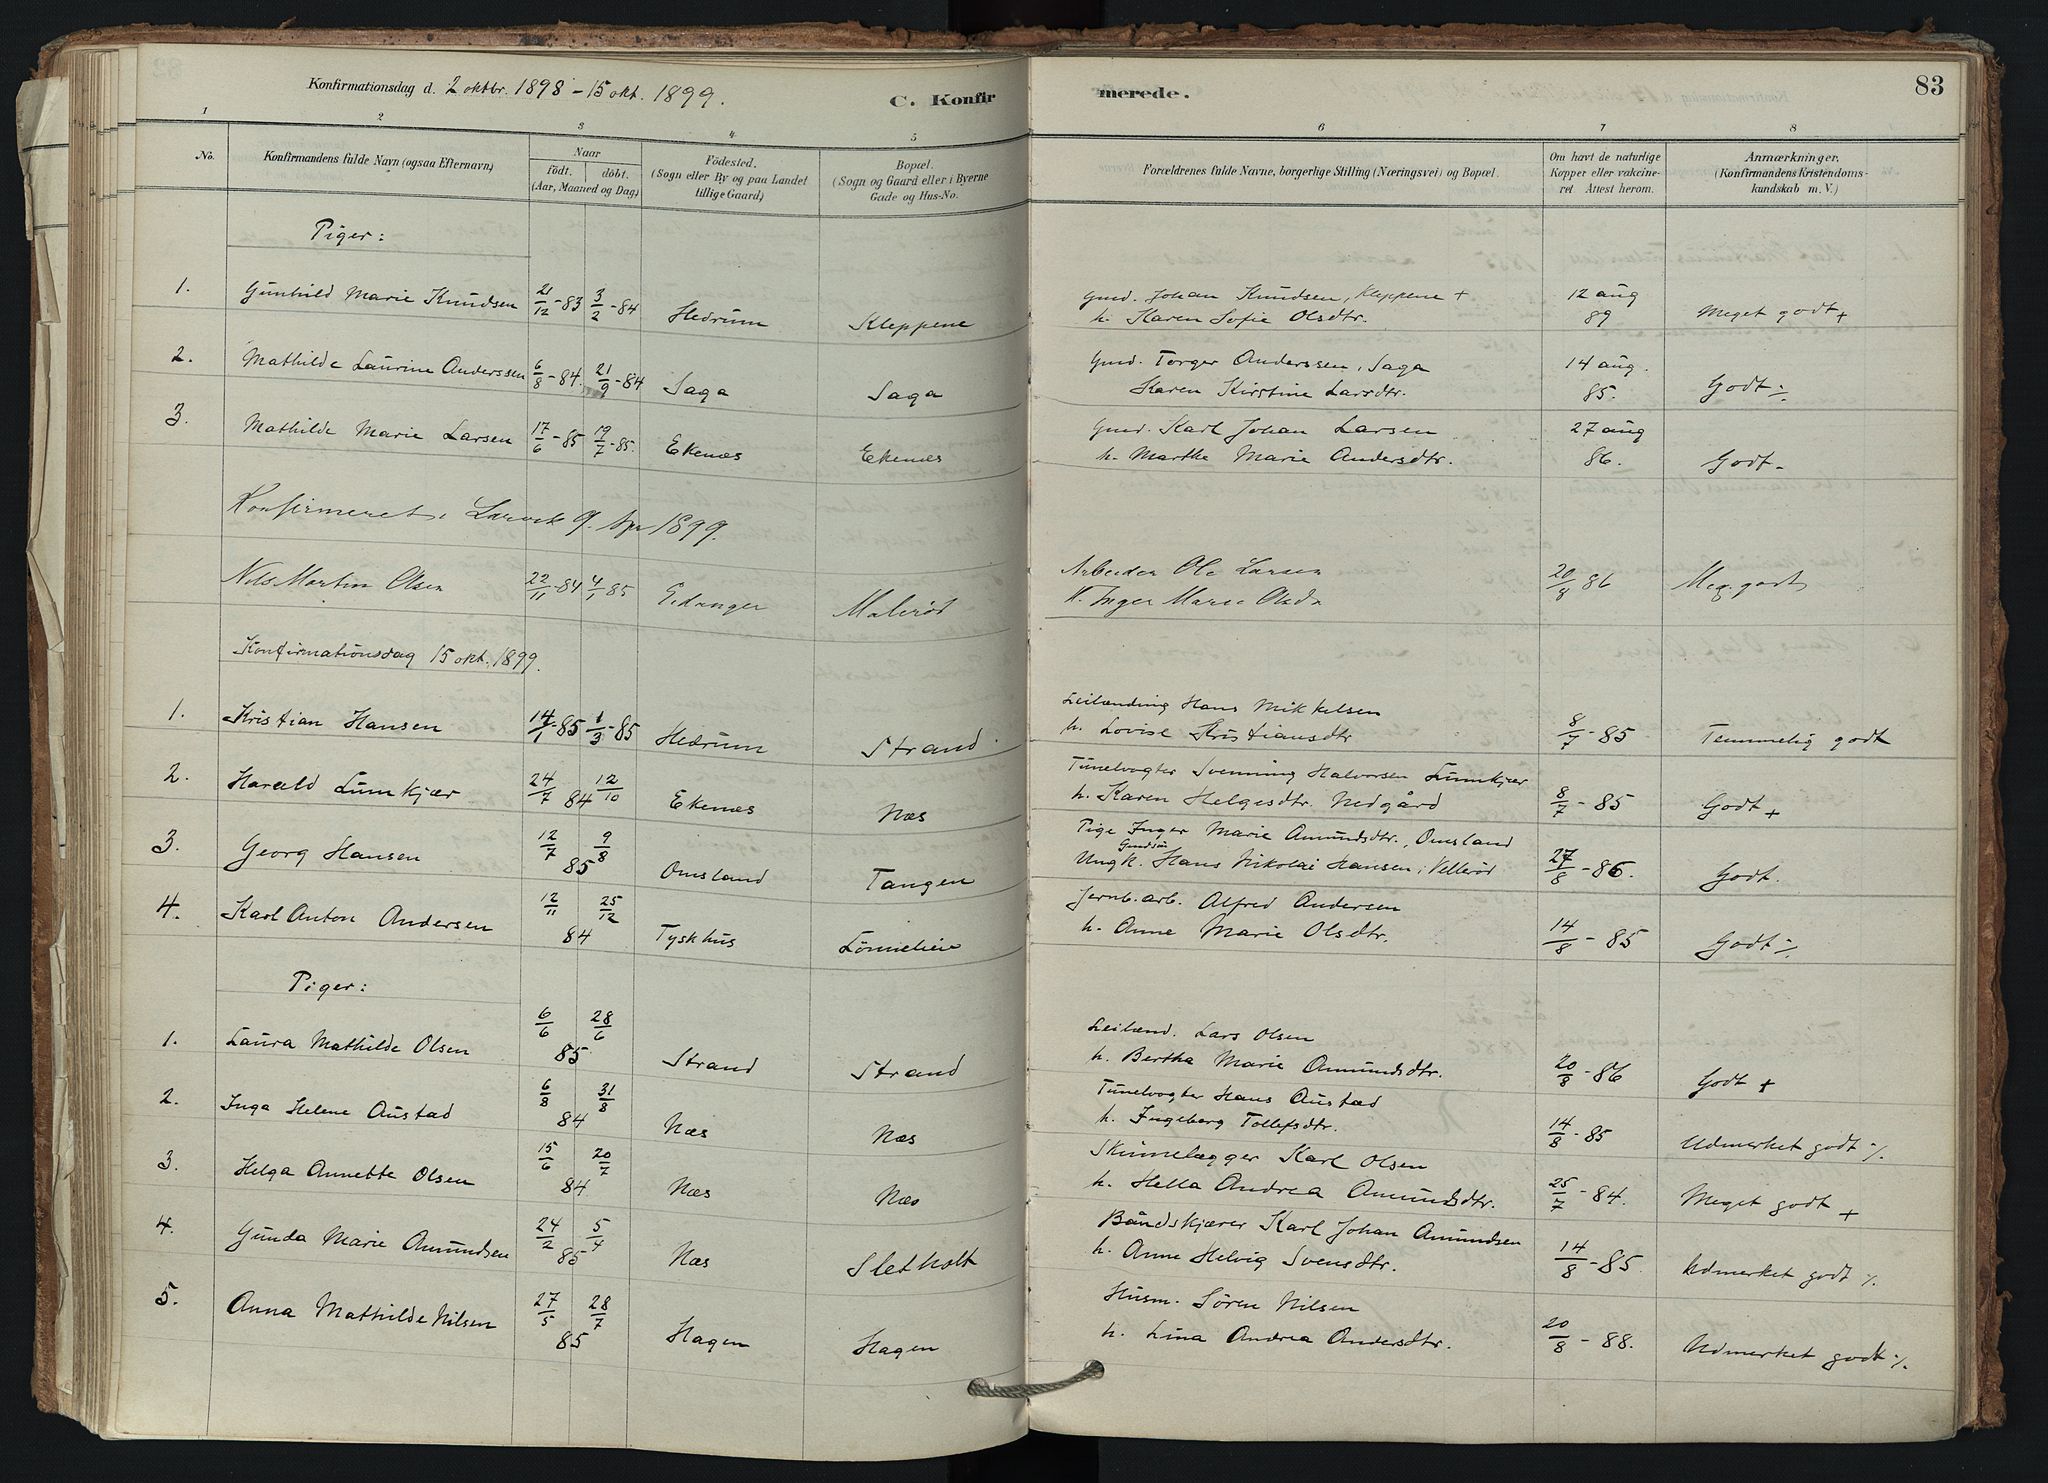 Konfirmationsdag d. 2 oktbr. 1898 - 15 okt. 1899.
C. Konfirmerede.
83
1 2 3 4 5 6 7 8
No.
Konfirmandens fulde Navn (ogsaa Efternavn)
Naar
født. døbt.
(Aar, Maaned og Dag)
Fødested.
(Sogn eller By og paa Landet
tillige Gaard)
Bopæl.
(Sogn og Gaard eller i Byerne
Gade og Hus-No.
Forældrenes fulde Navne, borgerlige Stilling (Næringsvei) og Bopæl.
Om havt de naturlige
Kopper eller vakcine-
ret. Attest herom.
Anmærkninger.
(Konfirmandens Kristendoms-
kundskab m. V.)
Piger:
1. Gunhild Marie Knudsen 21/12-83 3/2-84 Hedrum Kleppene Gmd. Johan Knudsen, Kleppene + 12 aug
h. Karen Sofie Olsdtr. 89 Meget godt +
2. Mathilde Laurine Anderssen 6/8-84. 21/9-84 Saga Saga Gmd. Torger Anderssen, Saga 14 aug.
Karen Kirstine Larsdtr. 85. Godt ÷
3. Mathilde Marie Larsen 17/6-85 19/7-85. Ekenæs Ekenæs Gmd. Karl Johan Larsen 27 aug
h. Marthe Marie Andersdtr. 86. Godt -
Konfirmeret i Larvik 9. Apr 1899.
Nils Martin Olsen 22/11-84 4/1-85 Eidanger Malerød Arbeider Ole Larsen 20/8 86 Meg. godt
H. Inger Marie Olsdr
Konfirmationsdag 15 okt. 1899.
1. Kristian Hansen 14/1-85 1/3-85 Hedrum Strand Leilænding Hans Mikkelsen
h. Lovise Kristiansdtr 8/7-85 Temmelig godt
2. Harald Lumkjær 24/7 12/10 84 Ekenæs Næs Tunelvogter Svenning Halvorsen Lumkjær
h. Karen Helgesdtr. Nedgård 8/7-85 Godt +
3. Georg Hansen 12/7 9/8 85 Omsland Tangen Pige Inger Marie Amundsdtr., Omsland
Ungk. Gmdsøn Hans Nikolai Hansen, Vellerød 27/8-86. Godt.
4. Karl Anton Andersen 12/11 25/12 84 Tyskhus Lønnelien Jernb. arb. Alfred Andersen
h. Anne Marie Olsdtr. 14/8-85 Godt ÷
Piger:
1. Laura Mathilde Olsen 6/6 28/6 85 Strand Strand Leilænd. Lars Olsen
h. Bertha Marie Amundsdtr. 20/8-86 Godt +
2. Inga Helene Austad 6/8 31/8 84 Næs Næs Tunelvogter Hans Austad
h. Ingeborg Tollefsdtr. 14/8-85 Udmerket godt ÷
3. Helga Annette Olsen 15/6 20/7 84 Næs Næs Skinnelægger Karl Olsen
h. Hella Andrea Amundsdtr. 25/7-84. Meget godt +
4. Gunda Marie Amundsen 24/2 5/4 85 Næs Sletholt Båndskjærer Karl Johan Amundsen
h. Anne Helvig Svensdtr. 14/8-85 Udmerket godt ÷
5. Anna Mathilde Nilsen 27/5 28/7 85 Hagen Hagen Husm. Søren Nilsen
h. Lina Andrea Andersdtr. 20/8-88. Udmerket godt ÷